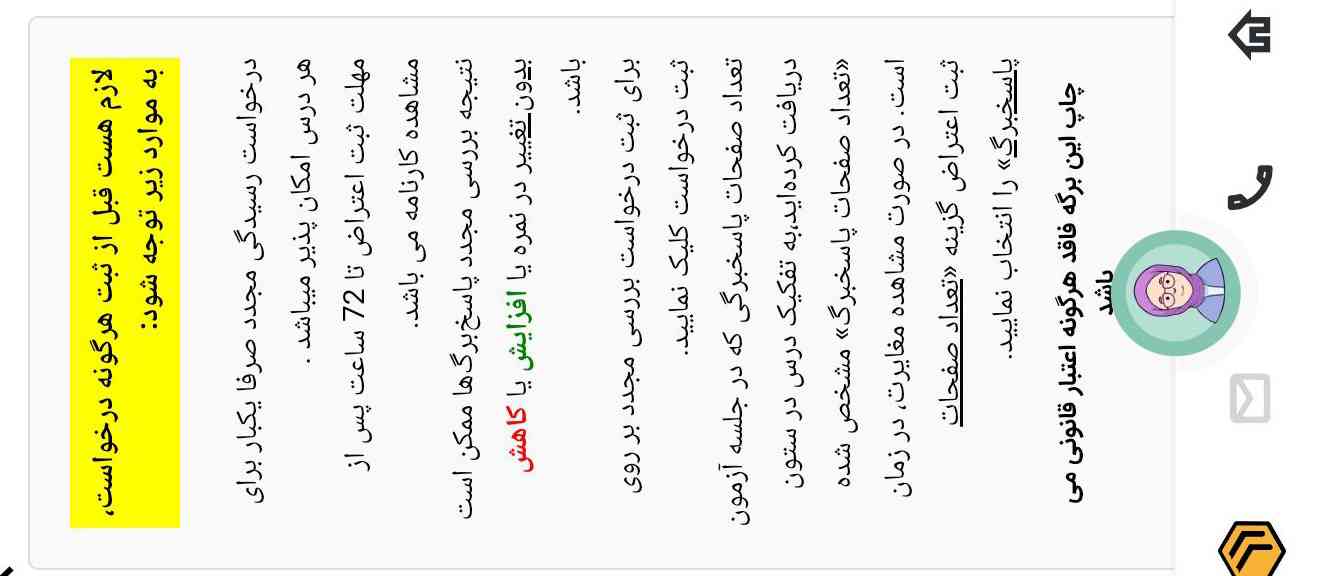 لازم هست قبل از ثبت هرگونه درخواست،
به موارد زیر توجه شود:
درخواست رسیدگی مجدد صرفا یکبار برای
هر درس امکان پذیر میباشد .
مهلت ثبت اعتراض تا 72 ساعت پس از
مشاهده کارنامه می باشد.
نتیجه بررسی مجدد پاسخ‌برگ‌ها ممکن است
بدون تغییر در نمره یا افزایش یا کاهش
باشد.
برای ثبت درخواست بررسی مجدد بر روی
ثبت درخواست کلیک نمایید.
تعداد صفحات پاسخبرگی که در جلسه آزمون
دریافت کرده‌اید،به تفکیک درس در ستون
«تعداد صفحات پاسخبرگ» مشخص شده
است. در صورت مشاهده مغایرت، در زمان
ثبت اعتراض گزینه «تعداد صفحات
پاسخبرگ» را انتخاب نمایید.
چاپ این برگه فاقد هرگونه اعتبار قانونی می
باشد